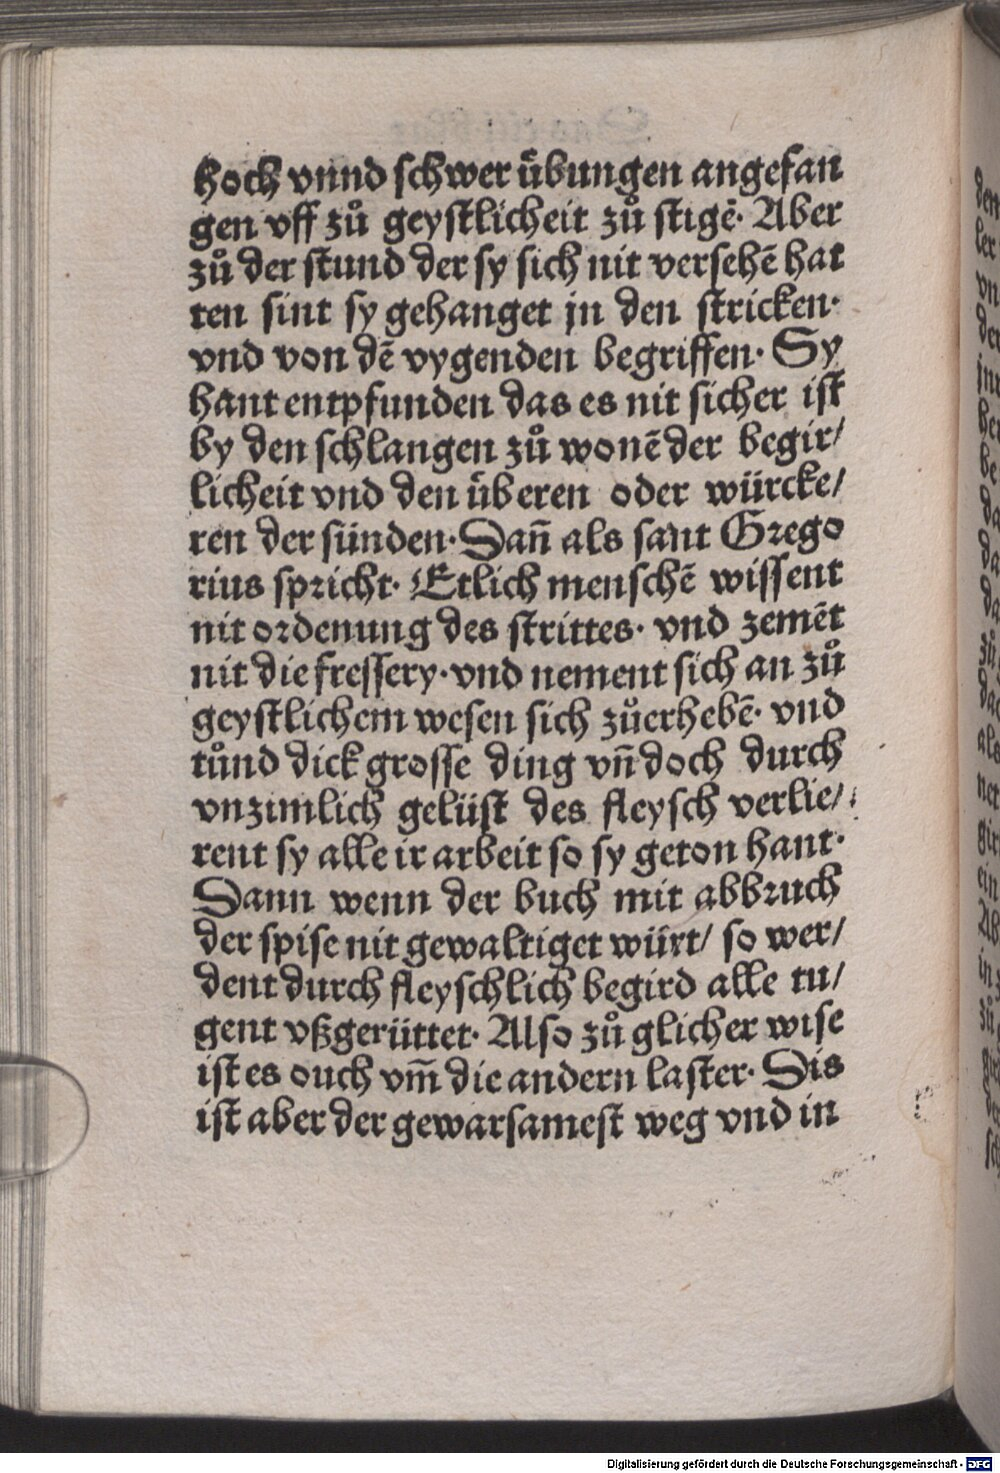 hoch vnnd schwer uͤbungen angefan
gen vff zuͦ geystlicheit zuͦ stigē· Aber
zuͦ der stund der sy sich nit versehē hat
ten sint sy gehanget in den stricken·
vnd von dē vygenden begriffen· Sy
hant entpfunden das es nit sicher ist
by den schlangen zuͦ wonē der begir/
licheit vnd den uͤberen oder würcke/
ren der sünden· Dañ als sant Grego
rius spricht· Etlich menschē wissent
nit ordenung des strittes· vnd zemēt
nit die fressery· vnd nement sich an zuͦ
geystlichem wesen sich zuͦerhebē· vnd
tuͦnd dick grosse ding vñ doch durch
vnzimlich gelüst des fleysch verlie/
rent sy alle ir arbeit so sy geton hant·
Dann wenn der buch mit abbruch
der spise nit gewaltiget würt/ so wer/
dent durch fleyschlich begird alle tu/
gent vßgerüttet· Also zuͦ glicher wise
ist es ouch vm̄ die andern laster· Dis
ist aber der gewarsamest weg vnd in
Digitalisierung gefördert durch die Deutsche Forschungsgemeinschaft - DFG